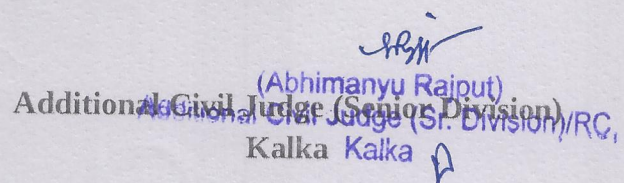 (Abhimanyu Rajput)
Additional Civil Judge (Senior Division)
Additional Civil Judge (Sr. Division)/RC,
Kalka Kalka